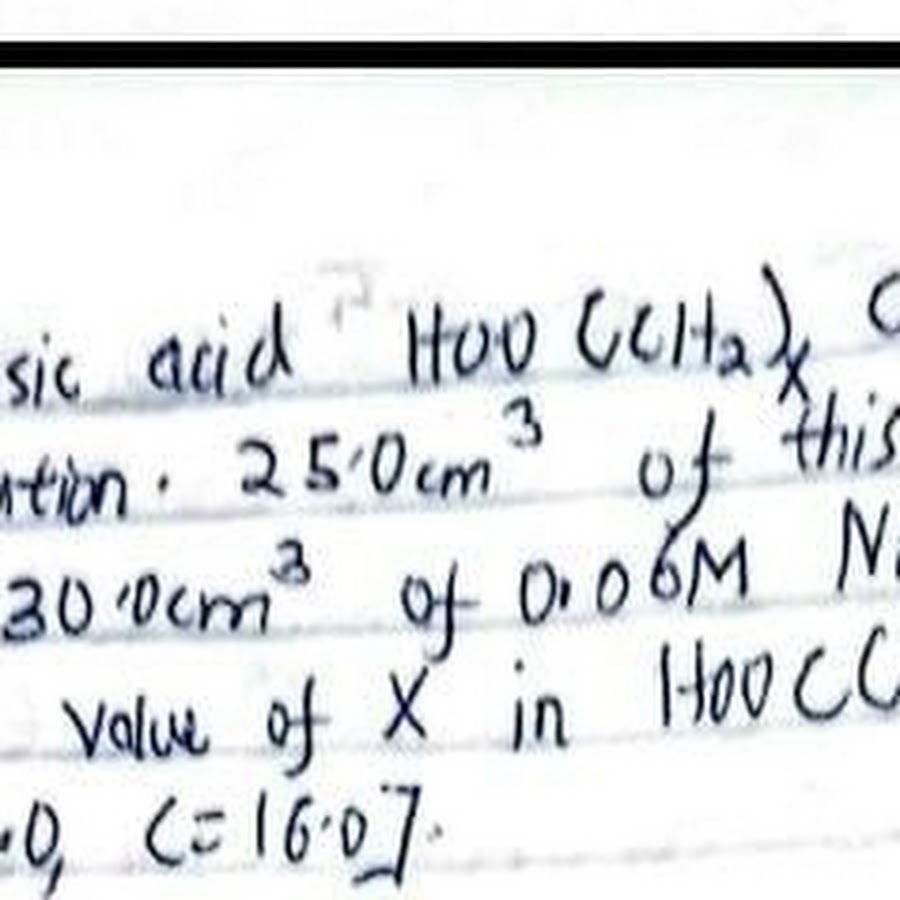 sic acid HOO (CH₂)ₓ C
tion. 25.0cm³ of this
30.0cm³ of 0.06M N
value of X in HOOC(
.0, C=16.0].